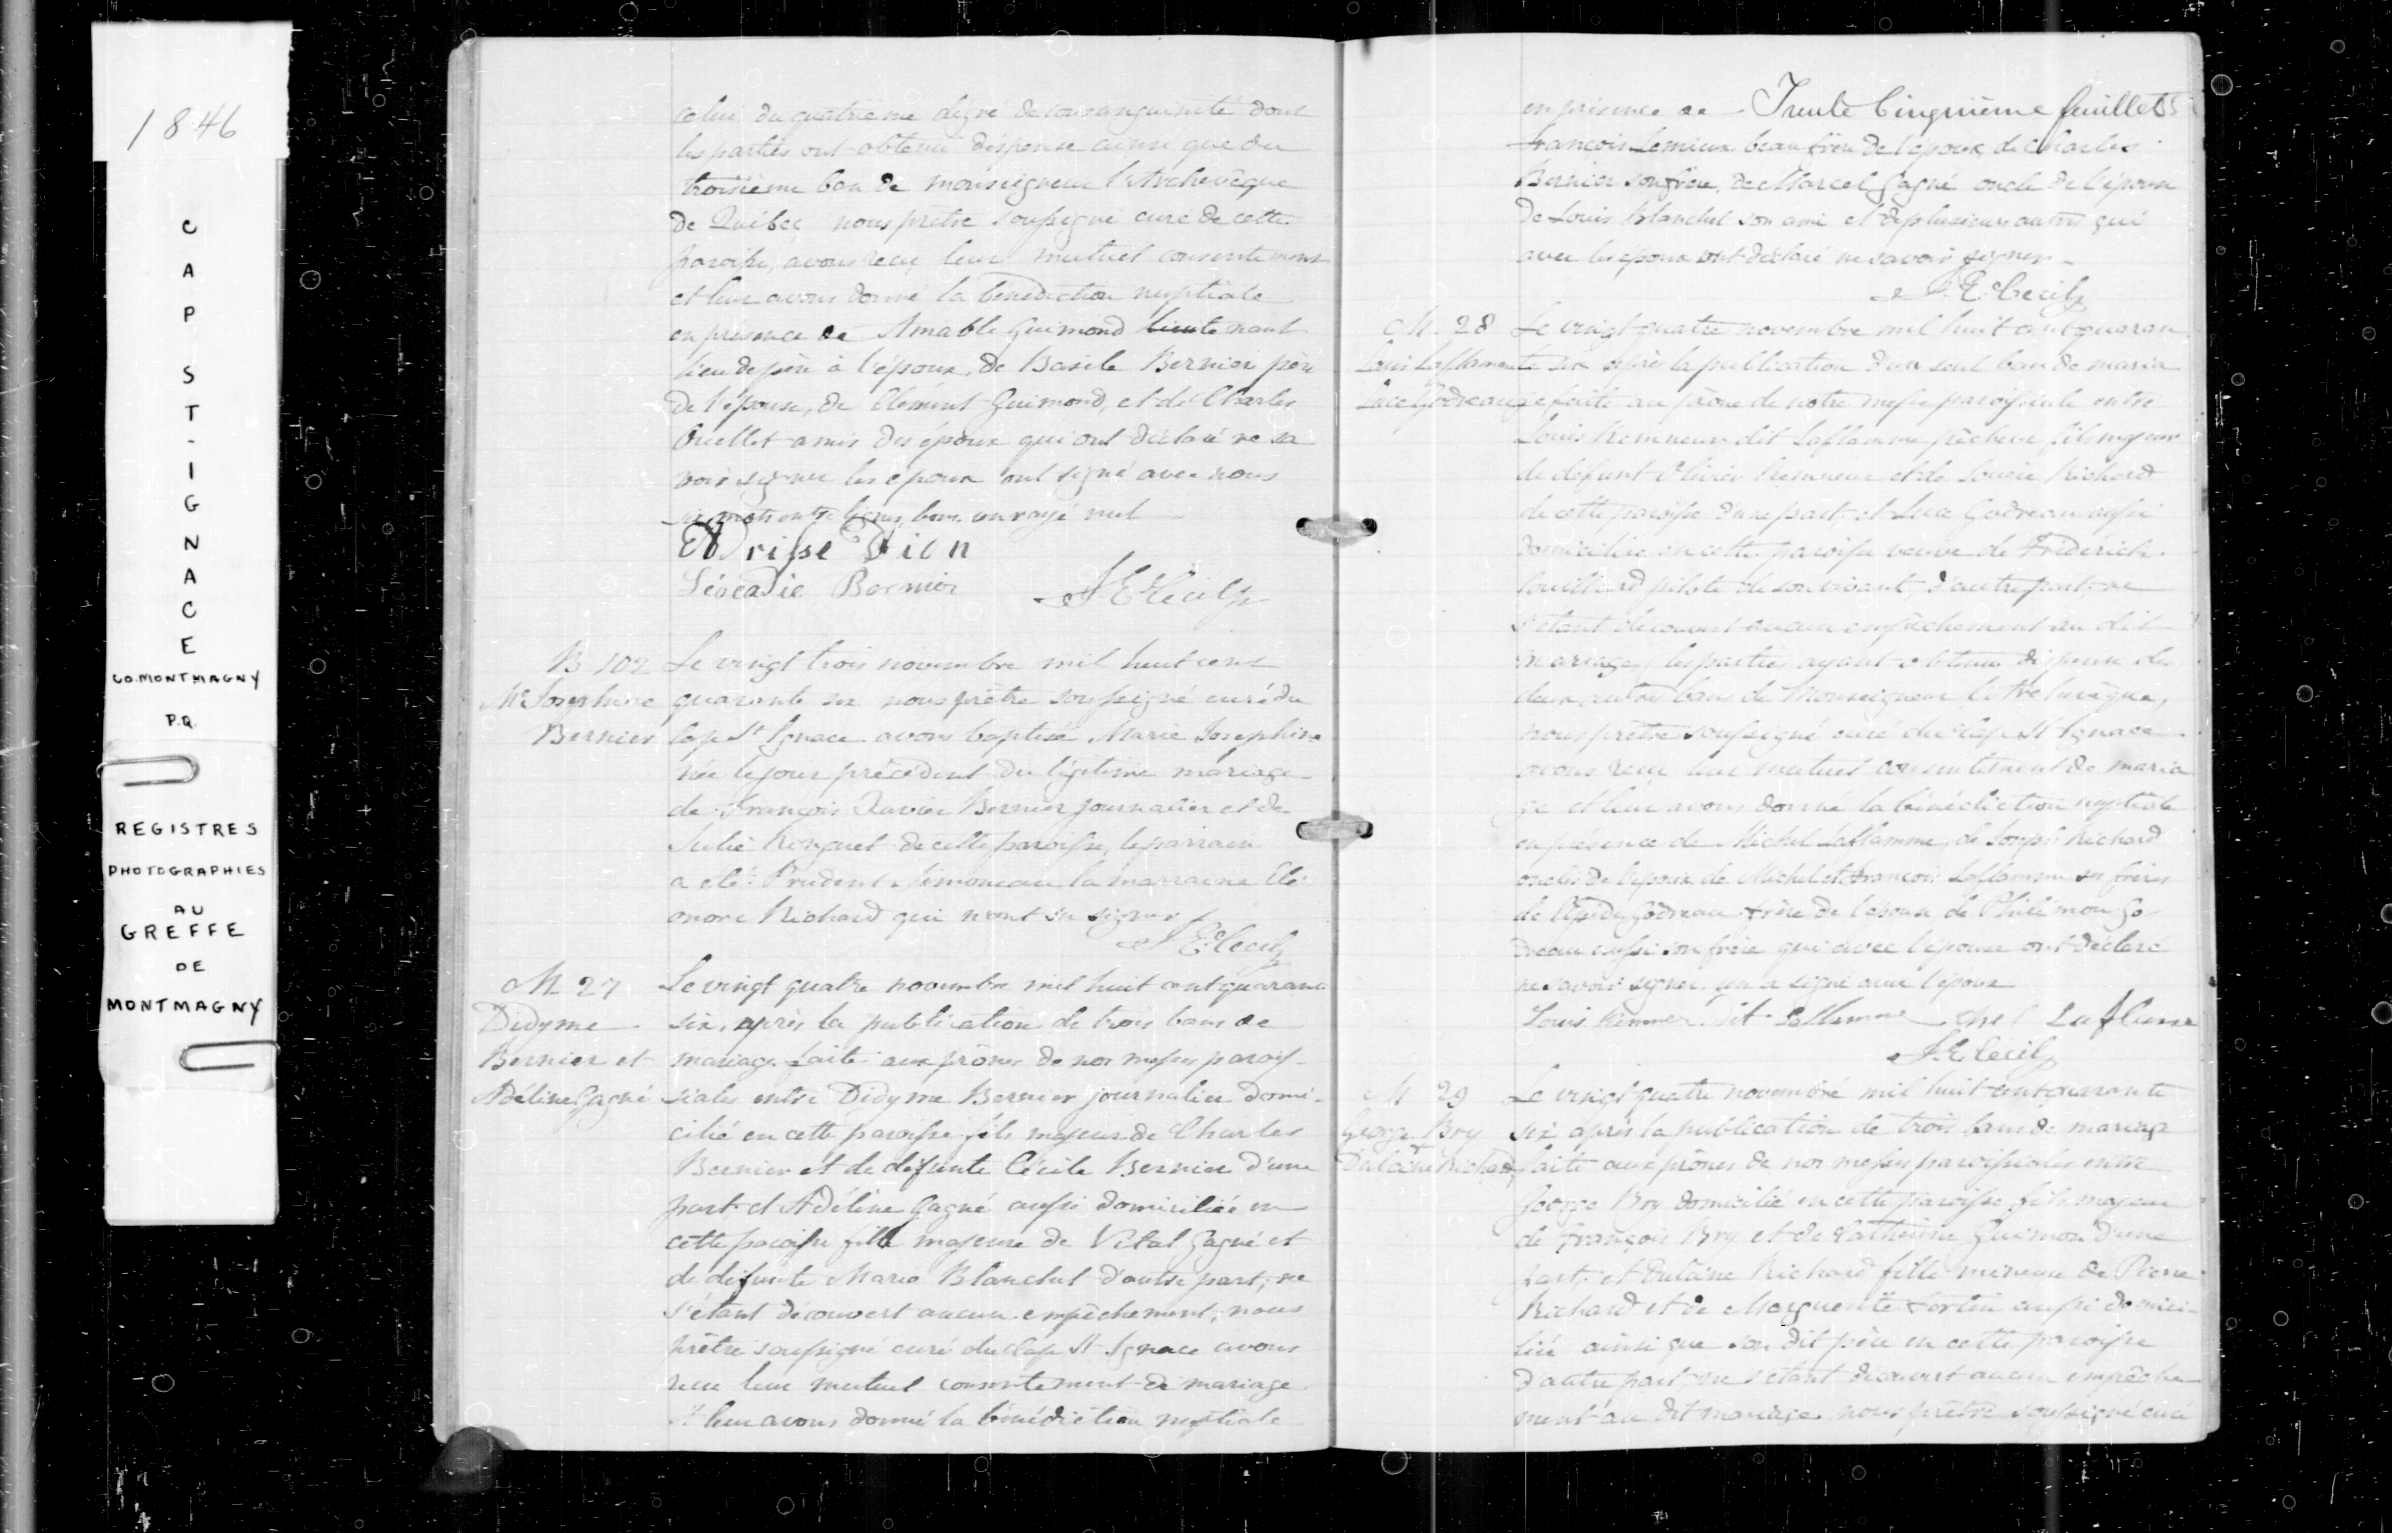 1846
CAP ST-IGNACE
CO. MONTMAGNY
P.Q.
REGISTRES
PHOTOGRAPHIES
AU
GREFFE
DE
MONTMAGNY
celui du quatrième degré de consanguinité dont
les parties ont obtenu dispense ainsi que du
troisième ban de monseigneur l'Archevêque
de Québec nous prêtre soussigné curé de cette
paroisse, avons reçu leur mutuel consentement
et leur avons donné la bénédiction nuptiale
en présence de Amable Guimond tenant
lieu de père à l'époux, de Basile Bernier père
de l'épouse, de Clément Guimond, et de Charles
Ouellet amis des époux qui ont déclaré ne sa
voir signer les époux ont signé avec nous
mots entre lignes bons un rayé nul
Edrisse Dion
Léocadie Bernier J E Cecil
B 102
Mie Josephine
Bernier
Le vingt trois novembre mil huit cent
quarante six nous prêtre soussigné curé du
Cap St Ignace avons baptisé Marie Josephine
née le jour précédent du légitime mariage
de François Xavier Bernier journalier et de
Julie de cette paroisse, le parrain
a été Prudent Simoneau la marraine Elé
onore Richard qui n'ont su signer
J E Cecil
M 27
Didyme
Bernier et
Adéline Gagné
Le vingt quatre novembre mil huit cent quarante
six, après la publication de trois bans de
mariage faite aux prônes de nos messes parois-
siales entre Didyme Bernier journalier domi-
cilié en cette paroisse fils majeur de Charles
Bernier et de défunte Cécile Bernier d'une
part et Adéline Gagné aussi domiciliée en
cette paroisse fille majeure de Vital Gagné et
de défunte Marie Blanchet d'autre part; ne
s'étant découvert aucun empêchement; nous
prêtre soussigné curé du Cap St Ignace avons
reçu leur mutuel consentement de mariage
et leur avons donné la bénédiction nuptiale
Trente Cinquième feuillet 35
en présence de
François Lemieux beau frère de l'époux, de Charles
Bernier son frère, de Marcel Gagné oncle de l'épouse
de Louis Blanchet son ami et de plusieurs autres qui
avec les époux ont déclaré ne savoir signer
J E Cecil
M. 28
Louis Laflamme
Luce Godreau
Le vingt quatre novembre mil huit cent quaran
te six après la publication d'un seul ban de maria
ge faite au prône de notre messe paroissiale entre
Louis Kemneur dit Laflamme pêcheur, fils majeur
de défunt Olivier Kemneur et de Louise Richard
de cette paroisse d'une part, et Luce Godreau aussi
domiciliée en cette paroisse veuve de Fréderick
pilote de son vivant, d'autre part, ne
s'étant découvert aucun empêchement au dit
mariage, les parties ayant obtenu dispense des
deux autres bans de Monseigneur l'Archevêque,
nous prêtre soussigné curé du Cap St Ignace
avons reçu leur mutuel consentement de maria
ge et leur avons donné la bénédiction nuptiale
en présence de Michel Laflamme, de Joseph Richard
oncles de l'époux de Michel et François Laflamme ses frères
de Godreau frère de l'épouse de Philémon Go
dreau aussi son frère qui avec l'épouse ont déclaré
ne savoir signer un a signé avec l'époux
Louis Kemner dit Laflamme Laflame
J E Cecil
M 29
George Bry
et
Délaine Richard
Le vingt quatre novembre mil huit cent quarante
six après la publication de trois bans de mariage
faite aux prônes de nos messes paroissiales entre
George Bry domicilié en cette paroisse fils majeur
de François Bry et de Catherine Guimon d'une
part, et Délaine Richard fille mineure de Pierre
Richard et de Marguerite Fortin aussi domici-
liée ainsi que son dit père en cette paroisse
d'autre part, ne s'étant découvert aucun empêche
ment au dit mariage nous prêtre soussigné curé